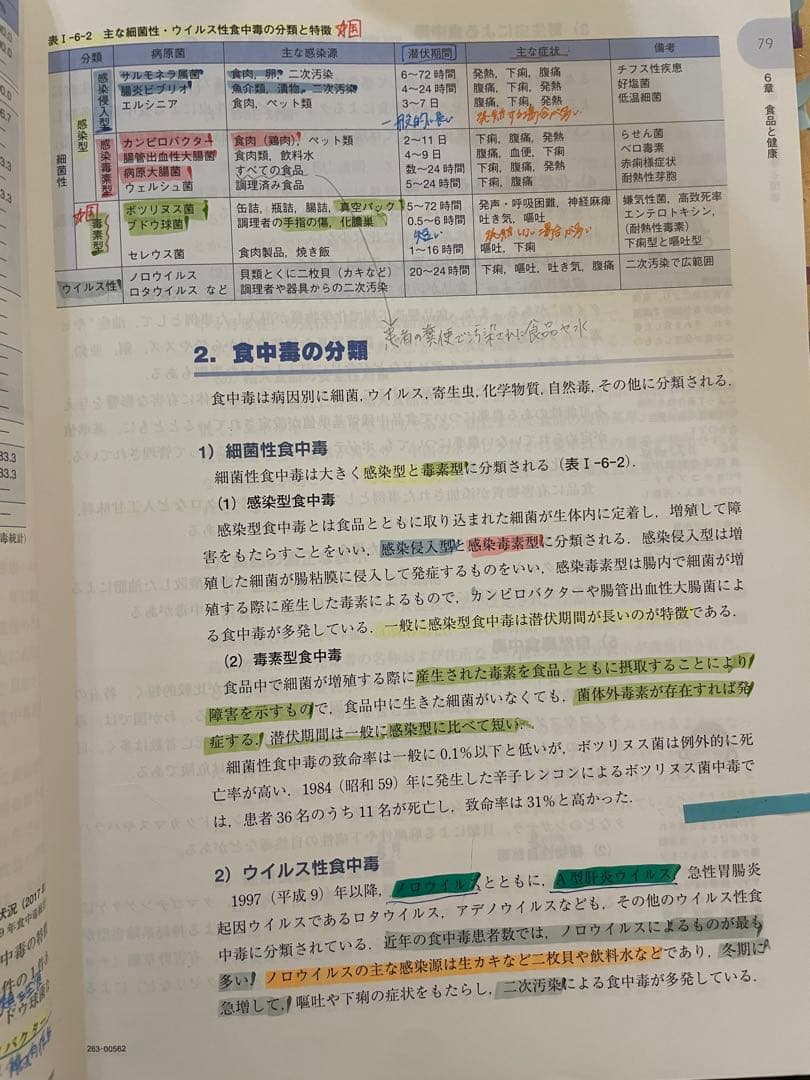 表Ⅰ-6-2 主な細菌性・ウイルス性食中毒の分類と特徴
分類 病原菌 主な感染源 潜伏期間 主な症状 備考
細菌性 感染型 感染侵入型 サルモネラ属菌 食肉，卵，二次汚染 6〜72時間 発熱，下痢，腹痛 チフス性疾患
腸炎ビブリオ 魚介類，漬物，二次汚染 4〜24時間 腹痛，下痢，発熱 好塩菌
エルシニア 食肉，ペット類 3〜7日 腹痛，下痢，発熱 低温細菌
一般的に長い 発熱する場合が多い
感染毒素型 カンピロバクター 食肉（鶏肉），ペット類 2〜11日 下痢，腹痛，発熱 らせん菌
腸管出血性大腸菌 食肉類，飲料水 4〜9日 腹痛，血便，下痢 ベロ毒素
病原大腸菌 すべての食品 数〜24時間 下痢，腹痛，発熱 赤痢様症状
ウェルシュ菌 調理済み食品 5〜24時間 下痢，腹痛 耐熱性芽胞
毒素型 ボツリヌス菌 缶詰，瓶詰，腸詰，真空パック 5〜72時間 発声・呼吸困難，神経麻痺 嫌気性菌，高致死率
ブドウ球菌 調理者の手指の傷，化膿巣 0.5〜6時間 吐き気，嘔吐 エンテロトキシン，
短い （耐熱性毒素）
セレウス菌 食肉製品，焼き飯 1〜16時間 嘔吐，下痢 下痢型と嘔吐型
ウイルス性 ノロウイルス 貝類とくに二枚貝（カキなど） 20〜24時間 下痢，嘔吐，吐き気，腹痛 二次汚染で広範囲
ロタウイルス など 調理者や器具からの二次汚染
患者の糞便で汚染された食品や水
79
6章 食品と健康
2．食中毒の分類
食中毒は病因別に細菌，ウイルス，寄生虫，化学物質，自然毒，その他に分類される．
1）細菌性食中毒
細菌性食中毒は大きく感染型と毒素型に分類される（表Ⅰ-6-2）．
（1）感染型食中毒
感染型食中毒とは食品とともに取り込まれた細菌が生体内に定着し，増殖して障
害をもたらすことをいい，感染侵入型と感染毒素型に分類される．感染侵入型は増
殖した細菌が腸粘膜に侵入して発症するものをいい，感染毒素型は腸内で細菌が増
殖する際に産生した毒素によるもので，カンピロバクターや腸管出血性大腸菌によ
る食中毒が多発している．一般に感染型食中毒は潜伏期間が長いのが特徴である．
（2）毒素型食中毒
食品中で細菌が増殖する際に産生された毒素を食品とともに摂取することにより
障害を示すもので，食品中に生きた細菌がいなくても，菌体外毒素が存在すれば発
症する．潜伏期間は一般に感染型に比べて短い．
細菌性食中毒の致命率は一般に0.1％以下と低いが，ボツリヌス菌は例外的に死
亡率が高い．1984（昭和59）年に発生した辛子レンコンによるボツリヌス菌中毒で
は，患者36名のうち11名が死亡し，致命率は31％と高かった．
2）ウイルス性食中毒
1997（平成9）年以降，ノロウイルスとともに，A型肝炎ウイルス，急性胃腸炎
起因ウイルスであるロタウイルス，アデノウイルスなども，その他のウイルス性食
中毒に分類されている．近年の食中毒患者数では，ノロウイルスによるものが最も
多い．ノロウイルスの主な感染源は生カキなど二枚貝や飲料水などであり，冬期に
急増して，嘔吐や下痢の症状をもたらし，二次汚染による食中毒が多発している．
263-00562